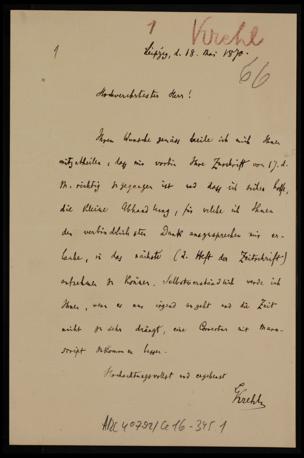 1 Krehl
1 Leipzig, d. 18. Mai 1870.
66
Hochverehrtester Herr!
Ihrem Wunsche gemäss beeile ich mich Ihnen
mitzutheilen, dass mir vorhin Ihre Zuschrift vom 17. d.
M. richtig zugegangen ist und dass ich sicher hoffe,
die kleine Abhandlung, für welche ich Ihnen
den verbindlichsten Dank auszusprechen mir er-
laube, in das nächste (2. Heft der Zeitschrift)
aufnehmen zu können. Selbstverständlich werde ich
Ihnen, wenn es nur irgend angeht und die Zeit
nicht zu sehr drängt, eine Correctur mit Manu-
script zukommen lassen.
Hochachtungsvollst und ergebenst
Krehl